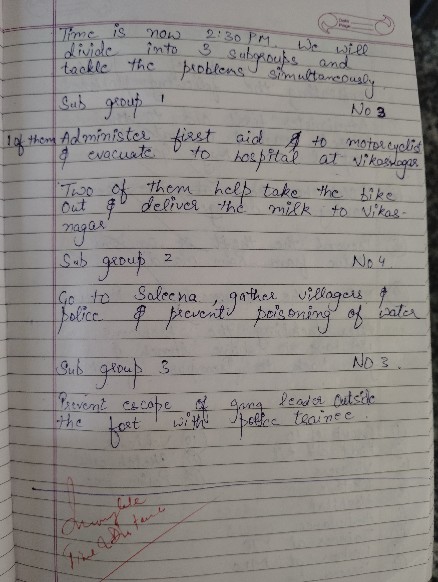 Time is now 2:30 PM. We will
divide into 3 subgroups and
tackle the problems simultaneously.
Sub group 1 No 3
1 of them Administer first aid & to motorcyclist
& evacuate to hospital at Vikasnagar
Two of them help take the bike
out & deliver the milk to Vikas-
nagar
Sub group 2 No 4
Go to Saleena, gather villagers &
police & prevent poisoning of water
Sub group 3 NO 3.
Prevent escape of gang leader outside
the fort with police trainee.
Incomplete
Time & Distance